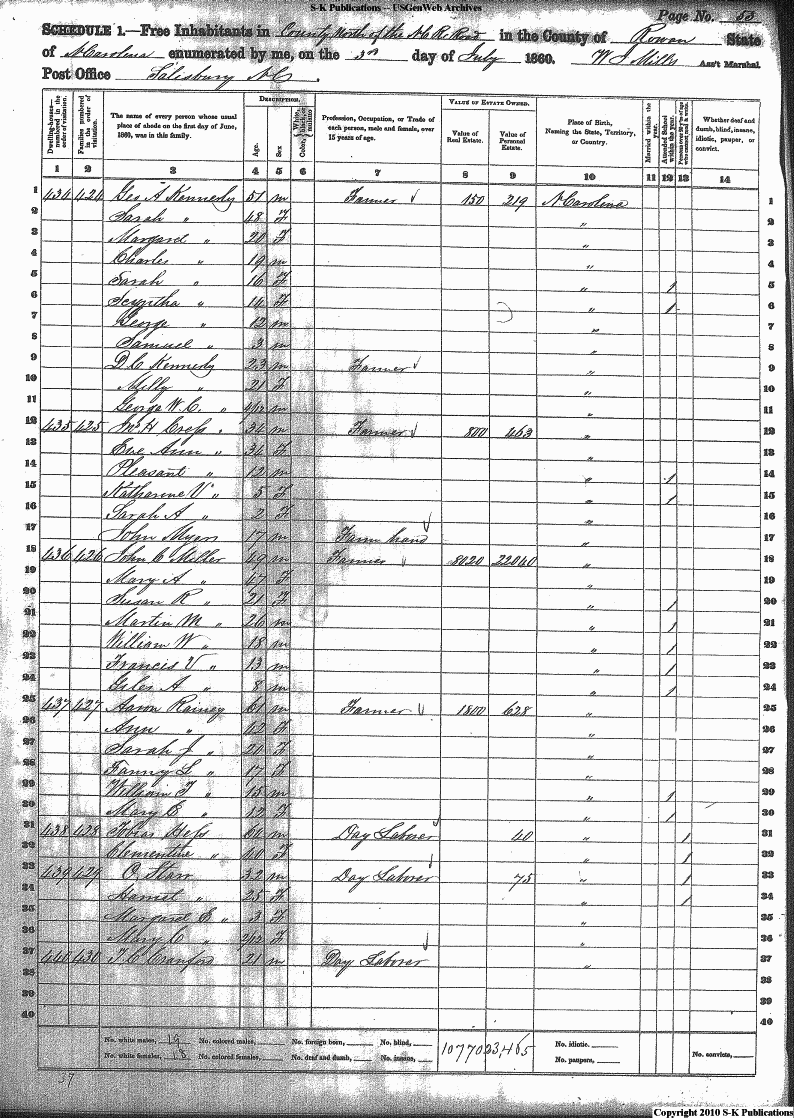 S-K Publications -- USGenWeb Archives
Page No. 53
SCHEDULE 1.—Free Inhabitants in County North of the N C R Road in the County of Rowan State
of N Carolina enumerated by me, on the 3rd day of July 1860. W J Mills Ass't Marshal.
Post Office Salisbury N C.
Dwelling-houses—numbered in the order of visitation. Families numbered in the order of visitation. The name of every person whose usual place of abode on the first day of June, 1860, was in this family. DESCRIPTION. Age. Sex Color, White, black, or mulatto Profession, Occupation, or Trade of each person, male and female, over 15 years of age. VALUE OF ESTATE OWNED. Value of Real Estate. Value of Personal Estate. Place of Birth, Naming the State, Territory, or Country. Married within the year. Attended School within the year. Persons over 20 y'rs of age who cannot read & write. Whether deaf and dumb, blind, insane, idiotic, pauper, or convict.
1 2 3 4 5 6 7 8 9 10 11 12 13 14
1 434 424 Geo A Kennerly 51 m Farmer 150 219 N Carolina 1
2 Sarah " 48 F " 2
3 Margaret " 20 F " 3
4 Charles " 19 m " 4
5 Sarah " 16 F " 1 5
6 " 14 F " 1 6
7 George " 12 m " 7
8 Samuel " 3 m " 8
9 D. C. Kennerly 23 m Farmer " 9
10 Milly " 21 F " 10
11 George W. C. " 9/12 m " 11
12 435 425 H Cress " 34 m Farmer 800 463 " 12
13 Eve Ann " 34 F " 13
14 Pleasant " 12 m " 1 14
15 Katharine V " 5 F " 1 15
16 Sarah A " 2 F " 16
17 John Myers 17 m Farm hand " 17
18 436 426 John C Miller 49 m Farmer " 8020 22040 " 18
19 Mary A " 47 F " 19
20 Susan R " 21 F " 1 20
21 Martin M " 26 m " 1 21
22 William W " 18 m " 1 22
23 Francis V " 13 m " 1 23
24 Giles A " 8 m " 1 24
25 437 427 Aaron Rainey 61 m Farmer 1800 628 " 25
26 Ann " 42 F " 26
27 Sarah J " 20 F " 27
28 Fanny L " 17 F " 28
29 William F " 15 m " 1 29
30 Mary E " 12 F " 1 30
31 438 428 Tobias Hess 64 m Day Laborer 40 " 1 31
32 Clementine " 40 F " 1 32
33 439 429 O. Starr 32 m Day Laborer 75 " 1 33
34 " 25 F " 1 34
35 Margaret E " 3 F " 35
36 Mary C " 2/12 F " 36
37 440 430 T. C. Cranford 21 m Day Laborer " 37
38 38
39 39
40 40
No. white males, 19 No. colored males, No. foreign born, No. blind, 10770 23,465 No. idiotic.
No. white females, 18 No. colored females, No. deaf and dumb, No. insane, No. paupers, No. convicts,
37
Copyright 2010 S-K Publications